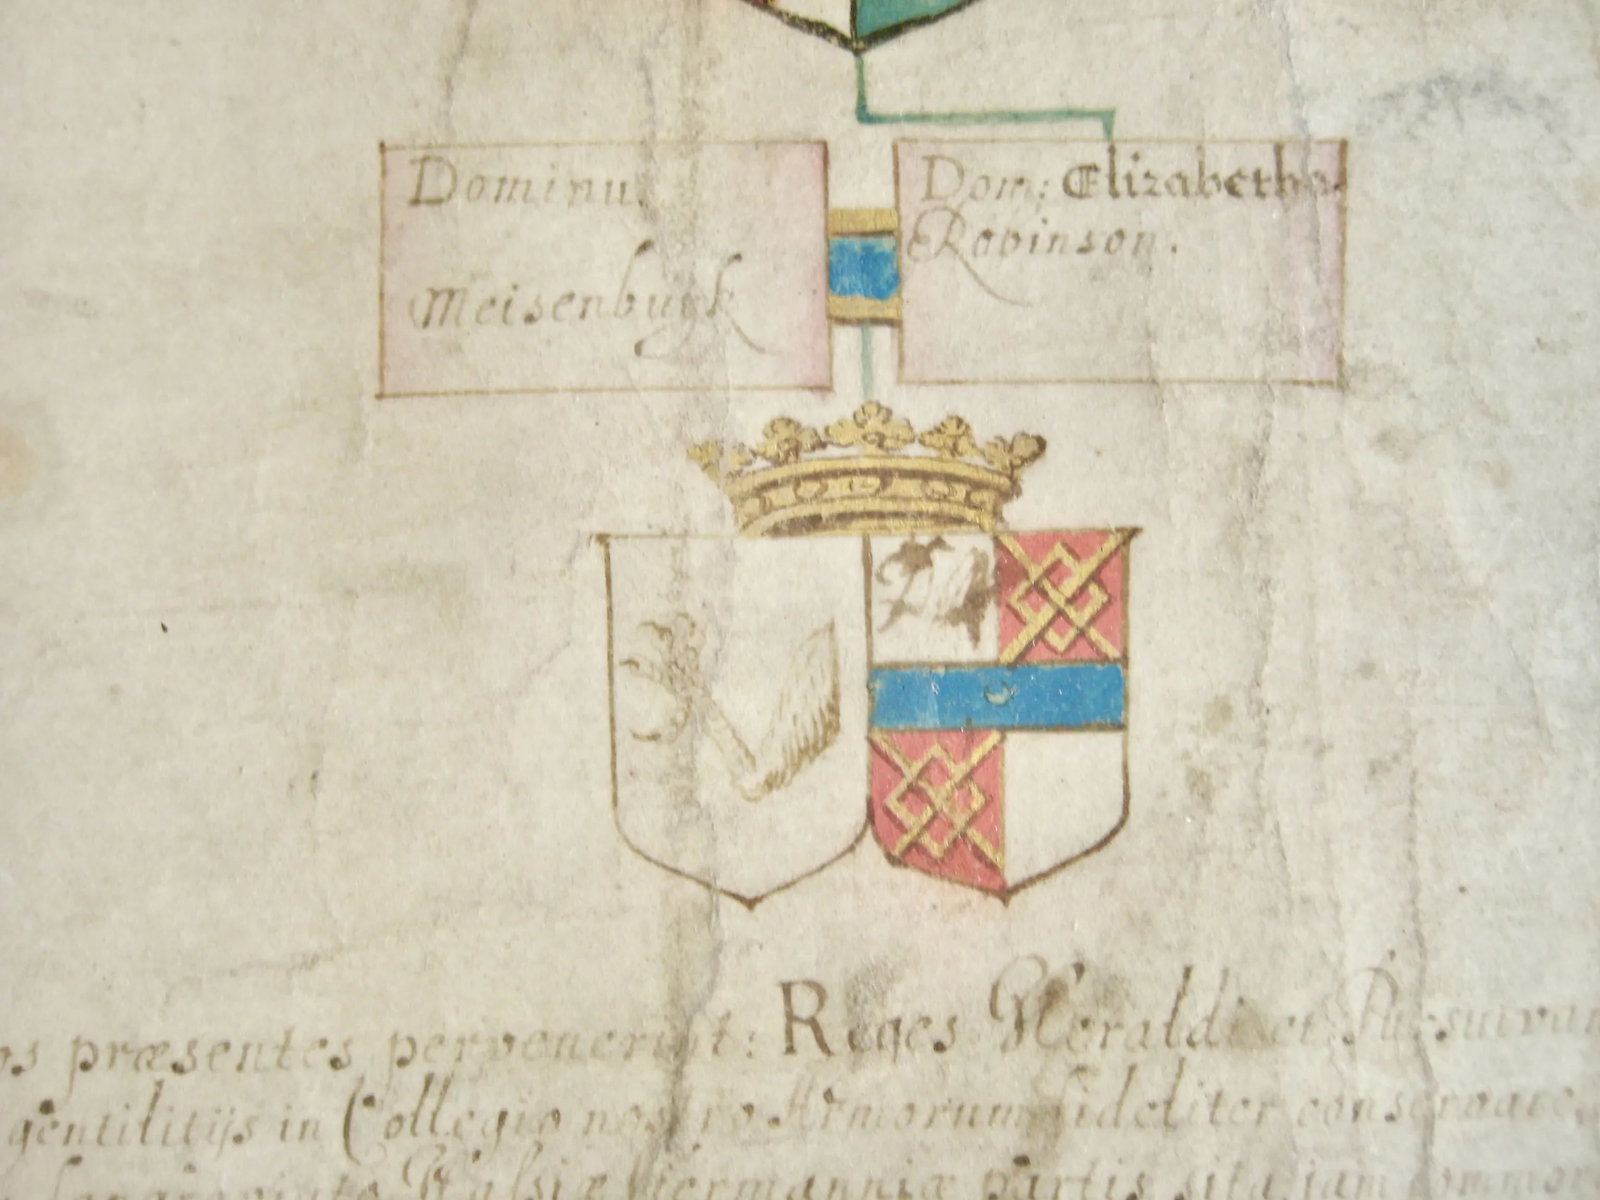 Dominus
Meisenbugk
Dom: Elizabetha
Robinson.
os præsentes pervenerint: Reges Heraldi et Pursuivan
gentilitijs in Collegio nostro Armorum fideliter conservare
Walsiæ Germanniæ partis sita iam commor